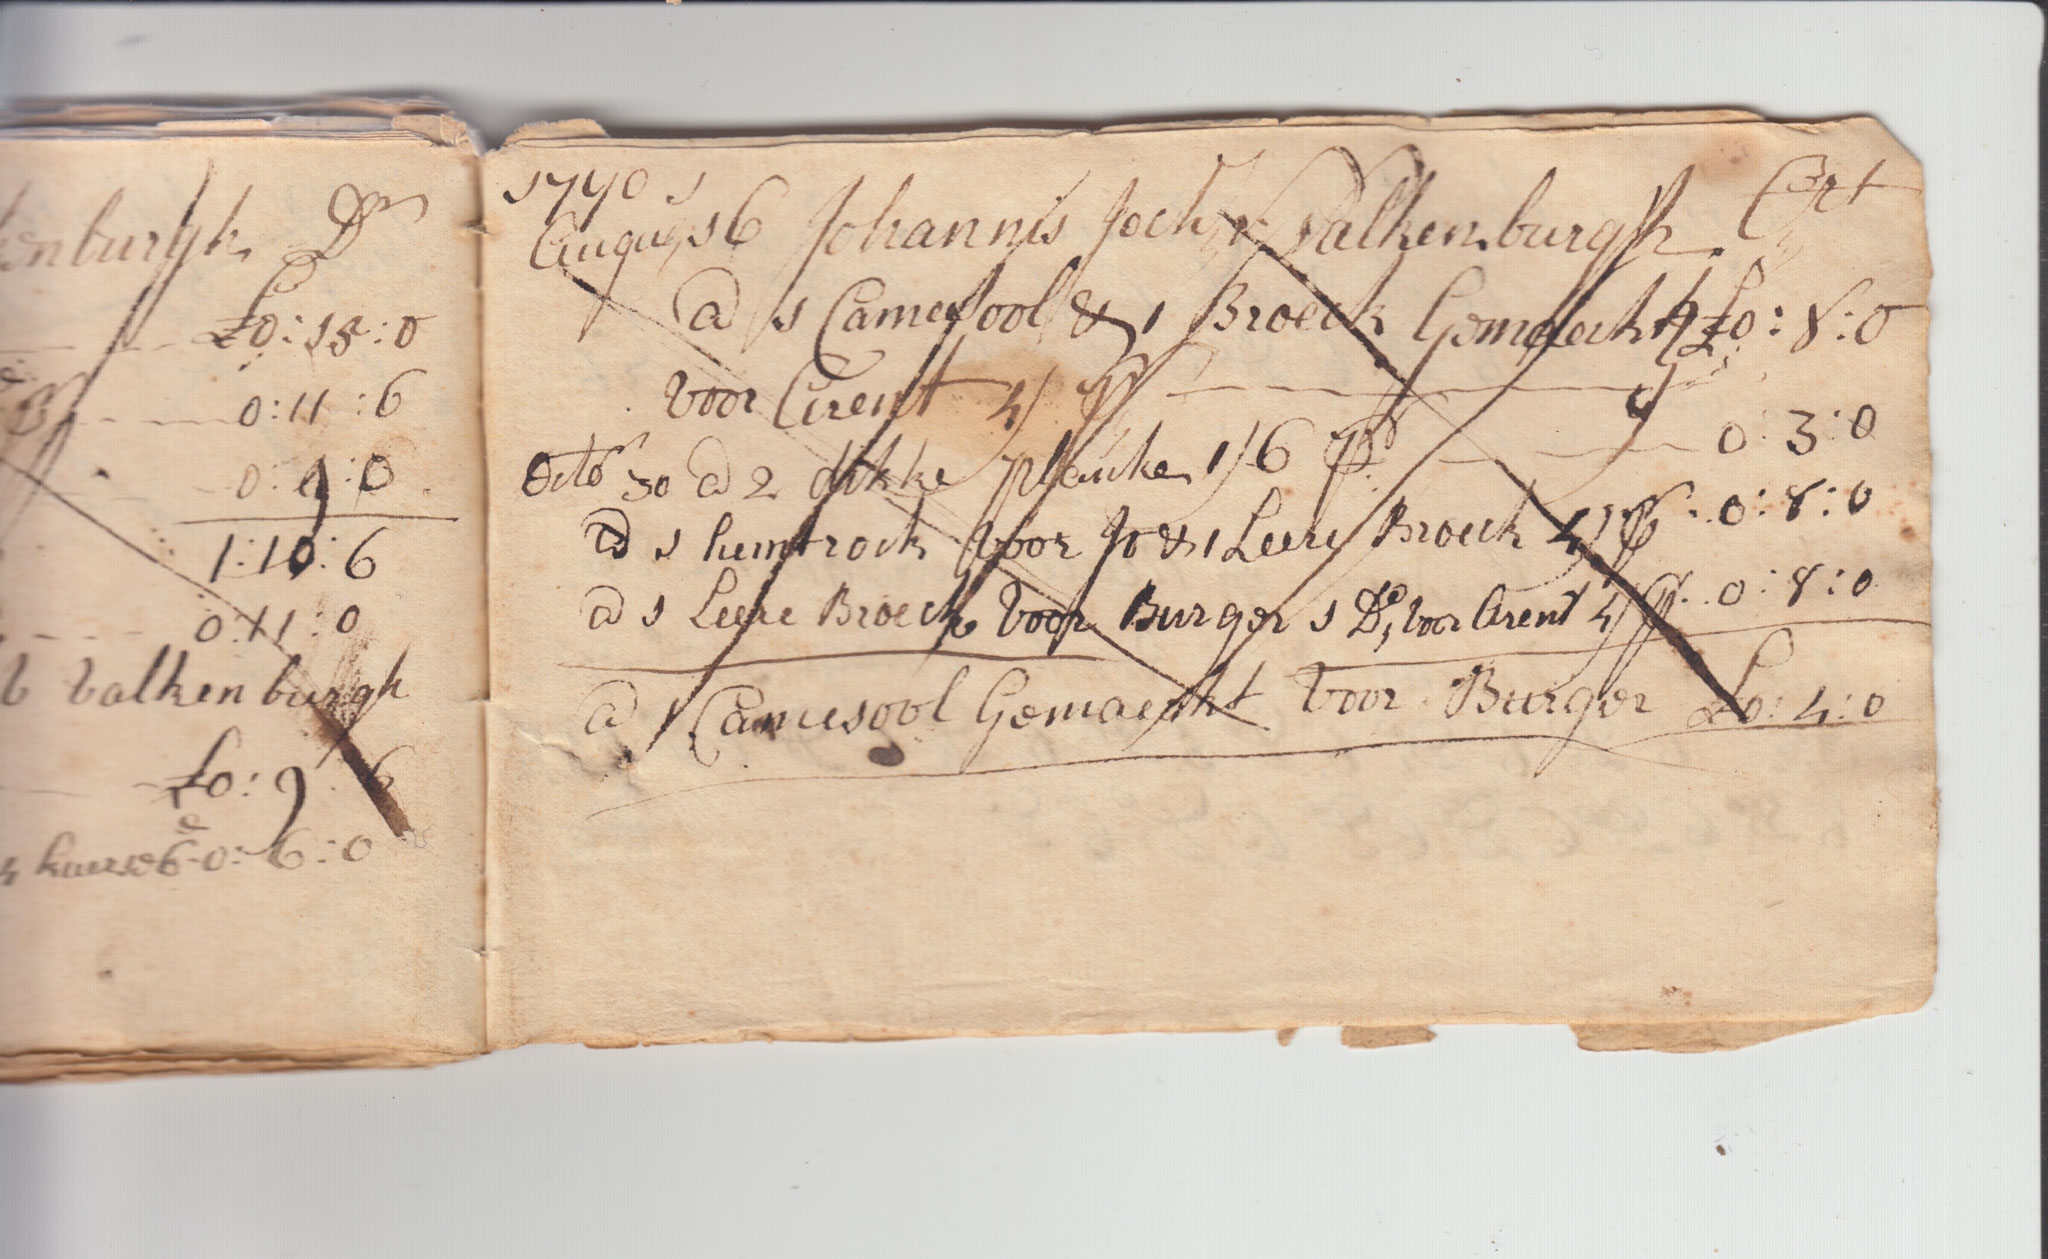 enburgh Dr
£0:15:0
0:11:6
0:4:0
1:10:6
0:11:0
V Valkenburgh
£0:9:6
0:6:0
1770
Augus 16 Johannis Joch V Valkenburgh Crt
@ 1 Camesool & 1 Broeck Gemaeckt £0:8:0
voor Arent 4/ p
Octbr 30 @ 2 dikke plancke 1/6 p 0:3:0
@ 1 hemtrock voor Jo & 1 Leere Broeck 4/ p 0:8:0
@ 1 Leere Broeck voor Burger 1 Do voor Arent 4/ p 0:8:0
@ 1 Camesool Gemaeckt voor Burger £0:4:0